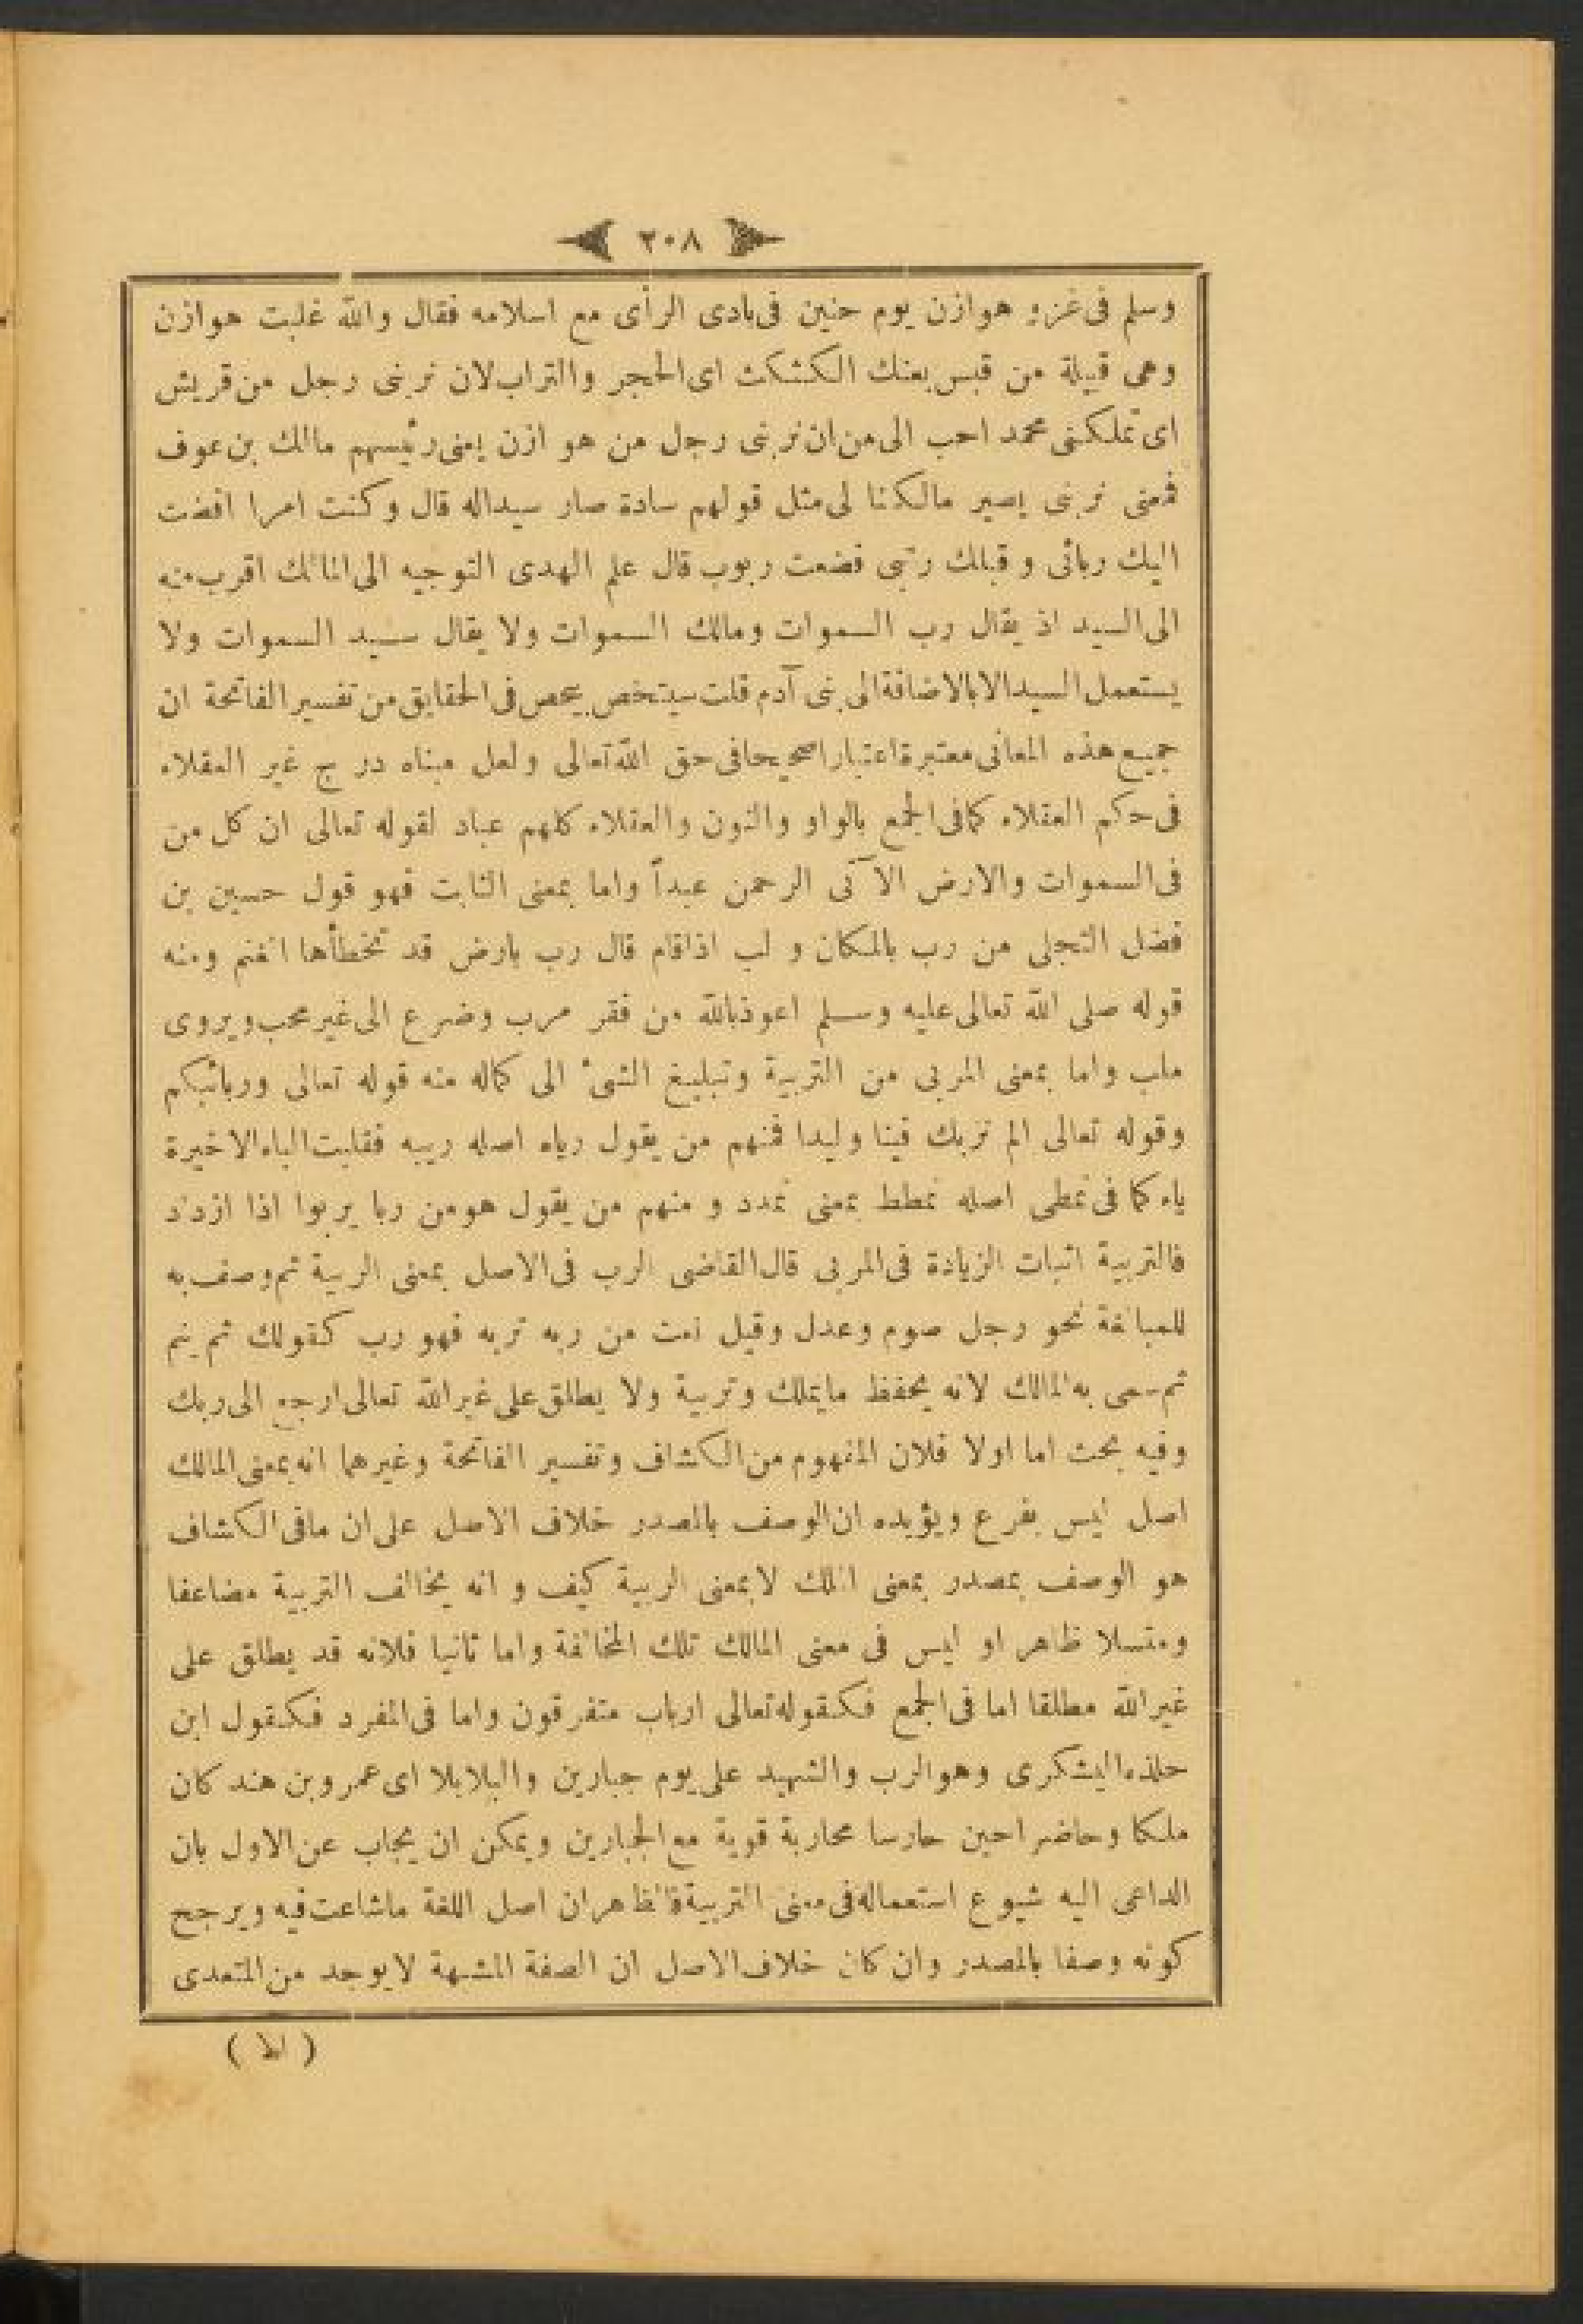 ٢٠٨
وسلم فى غزو هوازن يوم حنين فى بادى الرأى مع اسلامه فقال والله غلبت هوازن
وهى قبيلة من قيس بعنك الكشكث اى الحجر والتراب لان يربنى رجل من قريش
اى تملكنى محمد احب الى من ان يربنى رجل من هو ازن يعنى رئيسهم مالك بن عوف
فمعنى يربنى يصير مالكنا لى مثل قولهم سادة صار سيداله قال وكنت امرا افضت
اليك ربائى و قبلك ربتنى فضعت ربوب قال علم الهدى التوجيه الى المالك اقرب منه
الى السيد اذ يقال رب السموات ومالك السموات ولا يقال سيد السموات ولا
يستعمل السيد الا بالاضافة الى بنى آدم قلت سيتخص يحص فى الحقايق من تفسير الفاتحة ان
جميع هذه المعانى معتبرة اعتبارا صحيحا فى حق الله تعالى ولعل مبناه در ج غير العقلاء
فى حكم العقلاء كما فى الجمع بالواو والنون والعقلاء كلهم عباد لقوله تعالى ان كل من
فى السموات والارض الا آتى الرحمن عبداً واما بمعنى الثابت فهو قول حسين بن
فضل التجلى من رب بالمكان و لب اذا قام قال رب بارض قد تخطأها الغنم ومنه
قوله صلى الله تعالى عليه وسلم اعوذ بالله من فقر مرب وضرع الى غير محب ويروى
ملب واما بمعنى المربى من التربية وتبليغ الشئ الى كماله منه قوله تعالى وربائبكم
وقوله تعالى الم نربك فينا وليدا فمنهم من يقول رباه اصله رببه فقلبت الباء الاخيرة
ياء كما فى تمطى اصله تمطط بمعنى تمدد و منهم من يقول هو من ربا يربوا اذا ازداد
فالتربية اثبات الزيادة فى المربى قال القاضى الرب فى الاصل بمعنى الربية ثم وصف به
للمبالغة نحو رجل صوم وعدل وقيل نعت من ربه تربه فهو رب كقولك نم ينم
ثم سمى به المالك لانه يحفظ مايملك وتربية ولا يطلق على غير الله تعالى ارجع الى ربك
وفيه بحث اما اولا فلان المفهوم من الكشاف وتفسير الفاتحة وغيرهما انه بمعنى المالك
اصل ليس بفرع ويؤيده ان الوصف بالمصدر خلاف الاصل على ان مافى الكشاف
هو الوصف بمصدر بمعنى الملك لا بمعنى الربية كيف و انه يخالف التربية مضاعفا
ومتسلا ظاهر او ليس فى معنى المالك تلك المخالفة واما ثانيا فلانه قد يطلق على
غير الله مطلقا اما فى الجمع فكقوله تعالى ارباب متفرقون واما فى المفرد فكقول ابن
حلذه اليشكرى وهو الرب والشهيد على يوم جبارين والبلا بلا اى عمرو بن هند كان
ملكا وحاضر احين حارسا محاربة قوية مع الجبارين ويمكن ان يجاب عن الاول بان
الداعى اليه شيوع استعماله فى معنى التربية فالظاهر ان اصل اللغة ماشاعت فيه ويرجح
كونه وصفا بالمصدر وان كان خلاف الاصل ان الصفة المشبهة لا يوجد من المتعدى